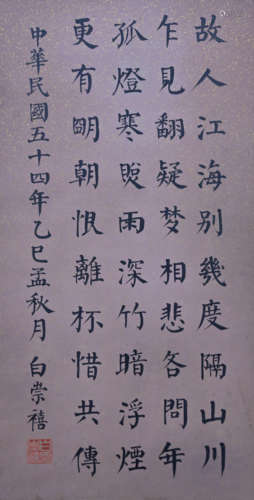 故人江海別幾度隔山川
乍見翻疑梦相悲各問年
孤燈寒照雨深竹暗浮煙
更有明朝恨離杯惜共傳
中華民國五十四年乙巳孟秋月 白崇禧